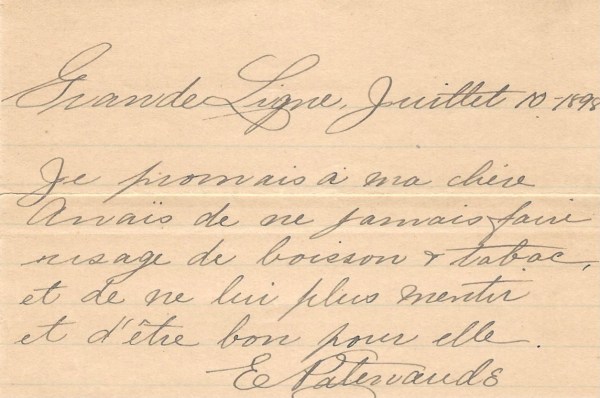 Grande Ligne, Juillet 10 - 1898
Je promais a ma chère
Anaïs de ne jamais faire
usage de boisson & tabac,
et de ne lui plus mentir
et d'être bon pour elle.
E Patenaude